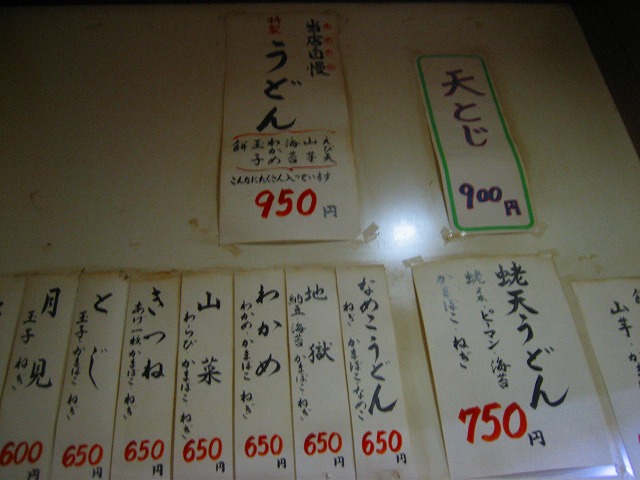 当店自慢
特製
うどん
えび天
山芋
海苔
わかめ
玉子
餅
こんなにたくさん入っています
950円
天とじ
900円
海老天うどん
海老天 ピーマン 海苔
かまぼこ ねぎ
750円
なめこうどん
ねぎ かまぼこ なめこ
650円
地獄
納豆 海苔 かまぼこ ねぎ
650円
わかめ
わかめ かまぼこ ねぎ
650円
山菜
わらび かまぼこ ねぎ
650円
きつね
あげ一枚 かまぼこ ねぎ
650円
とじ
玉子 かまぼこ ねぎ
650円
月見
玉子 ねぎ
600円
山芋